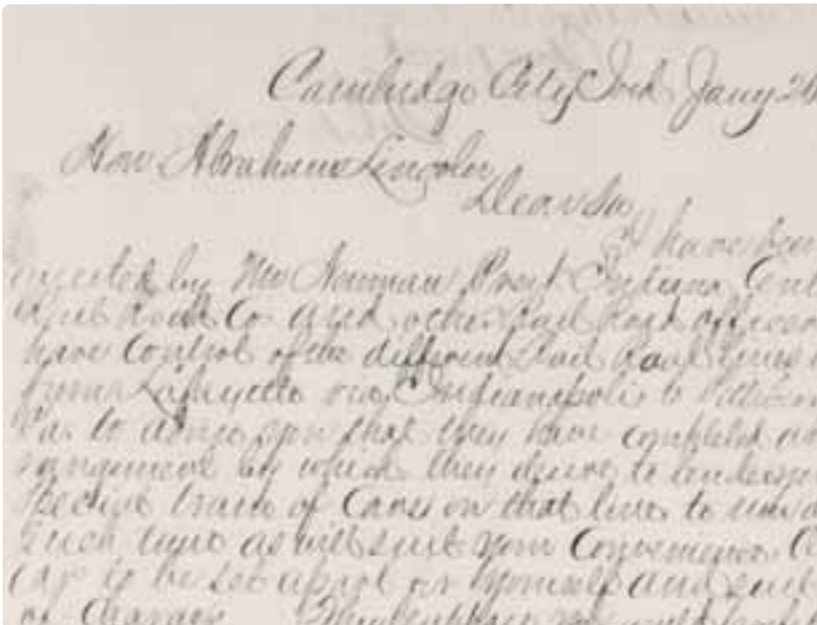 Cambridge City Ind Jany 21
Hon Abraham Lincoln
Dear Sir
I have been
by Mr Newman Prest Indiana Cent
Rail Road Co and other Rail Road officers
have control of the different Rail Road lines
from Lafayette via Indianapolis to
Pa. to advise you that they have completed ar
rangement by which they desire to tender you
Special train of Cars on that line to run
Such time as will suit your Convenience. A
Car to be set apart for yourself and suit
of Charge.